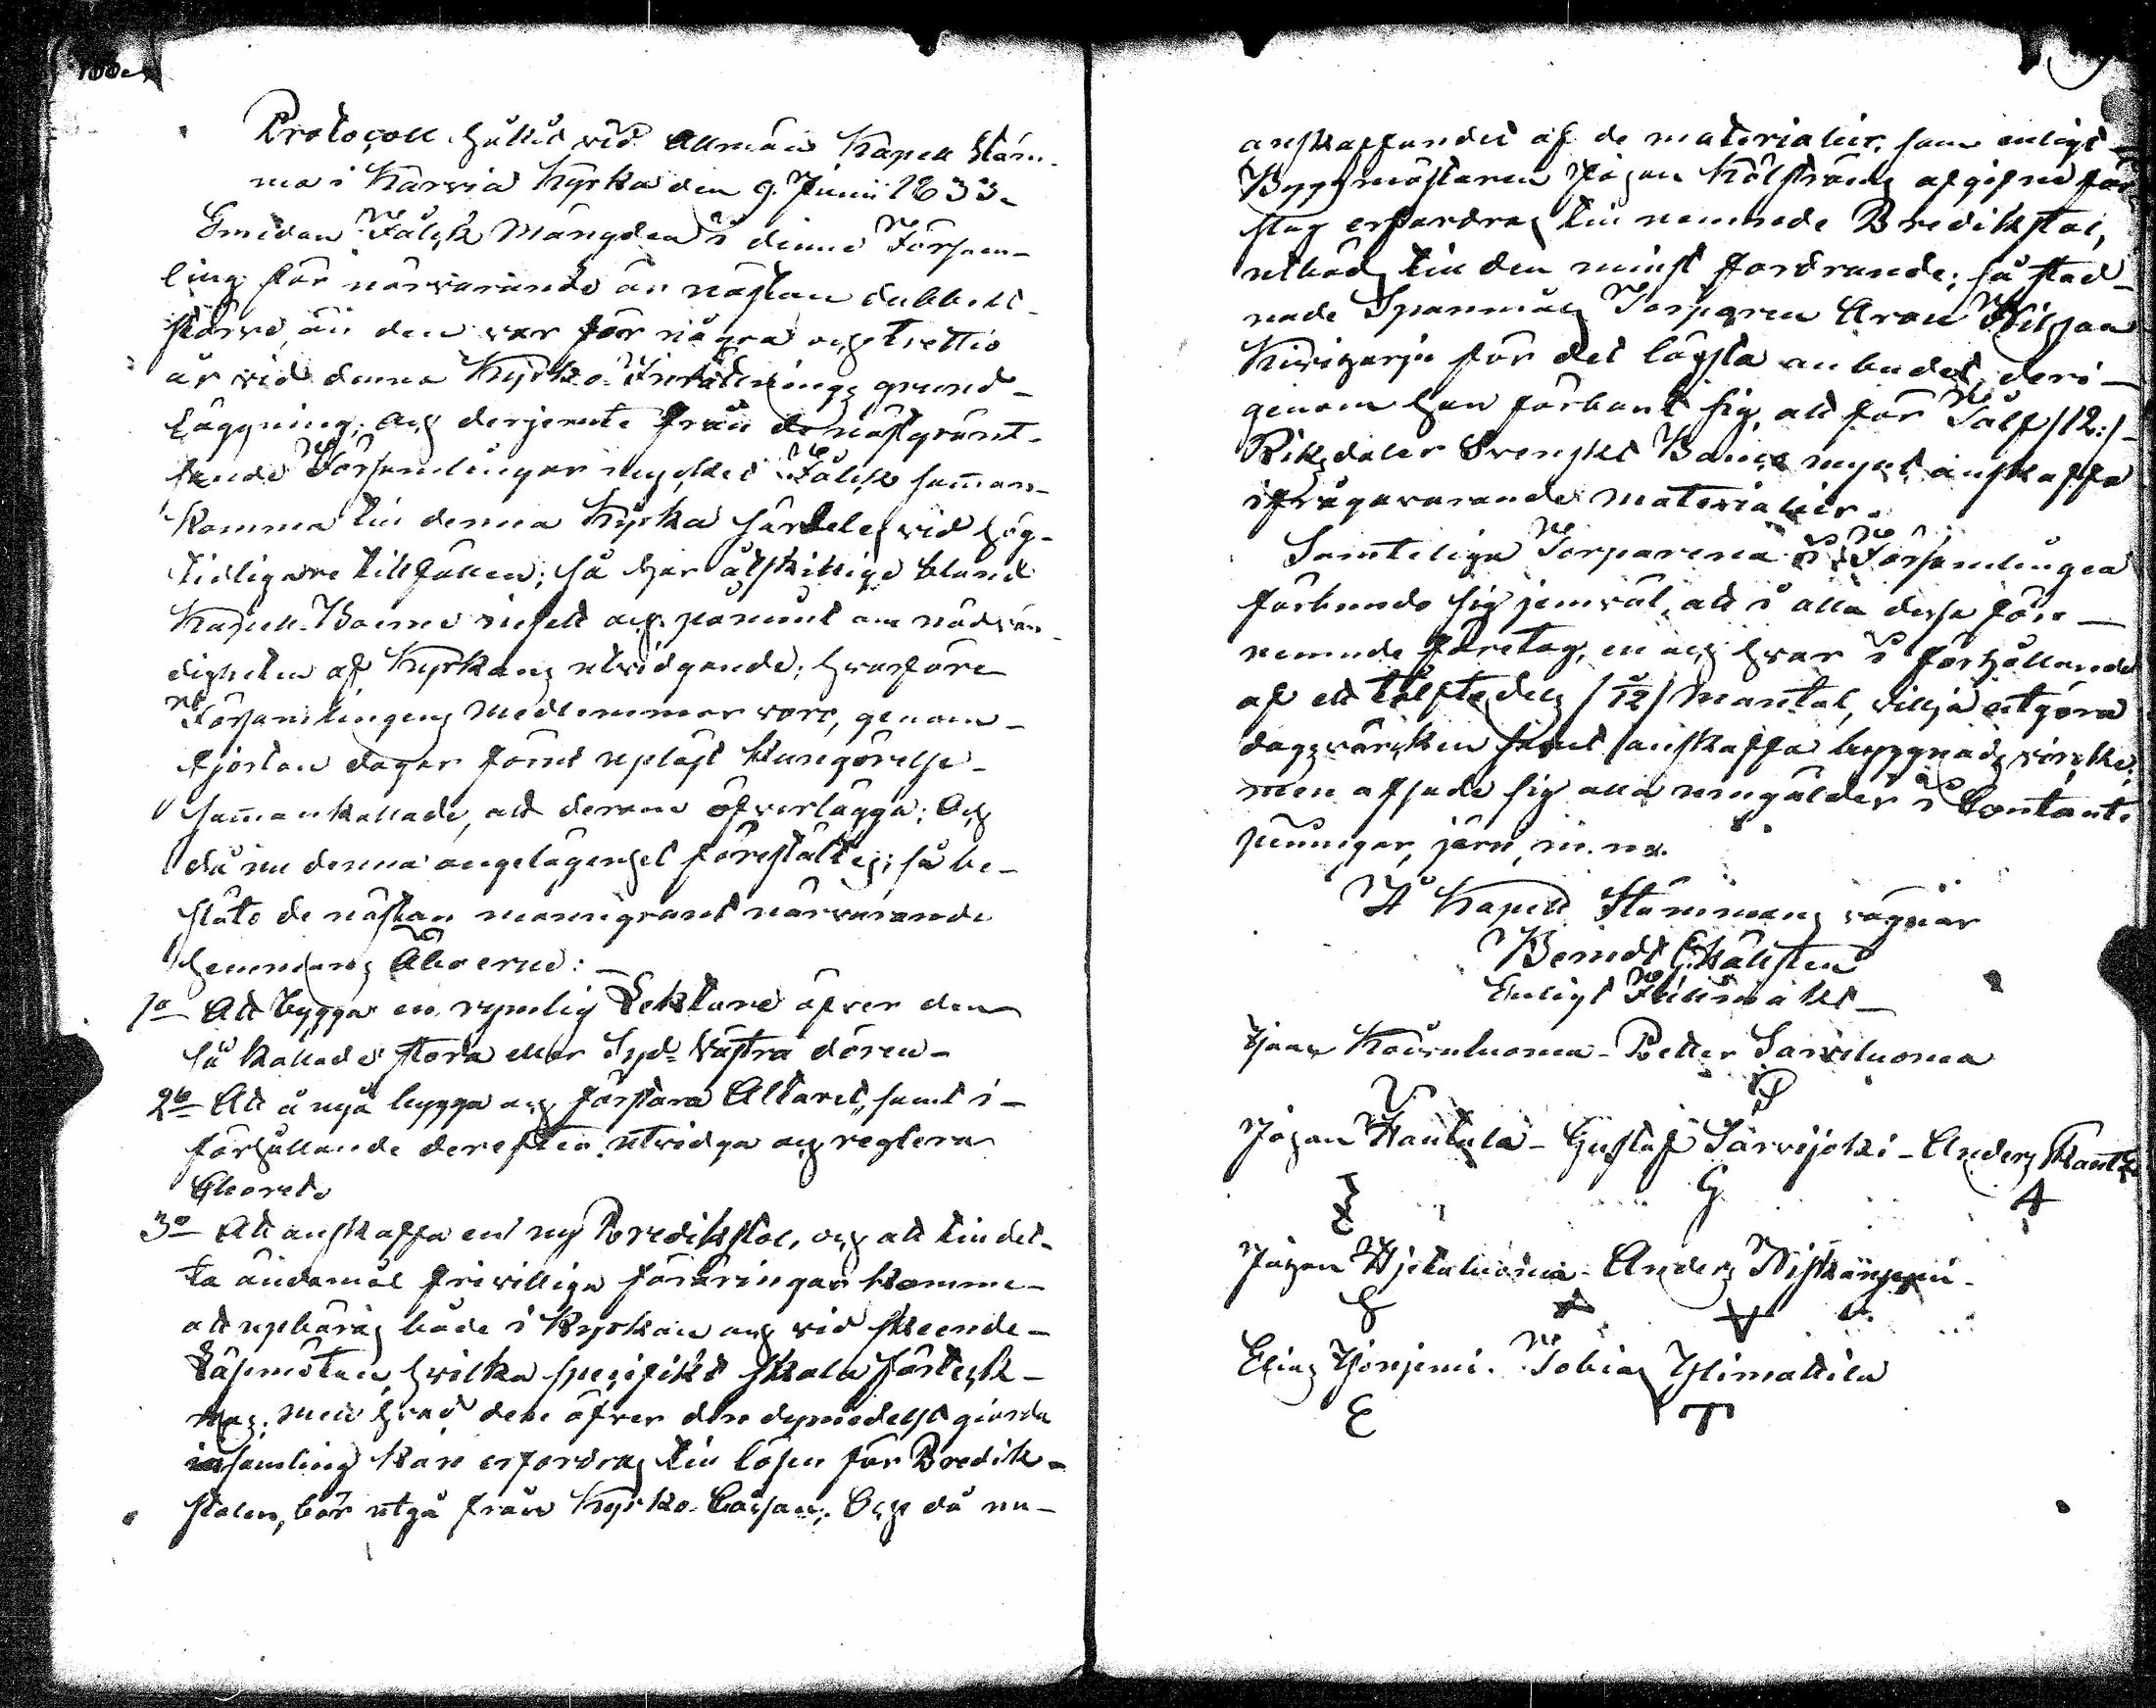 Protocoll hållit vid Allmän Kapell Stäm-
ma i Karvia Kyrka den 9. Junii 1833.
Emedan Folck Mängden i denne Försam-
ling för närvarande är nästan dubbelt
större, än den var för några och trettio
år vid denna Kyrko-Inrättnings grund-
läggning; och derjemte från de näst gränt-
sande Församlingar mycket Folck samman-
komma till denna Kyrka särdeles vid hög-
tidligare tillfällen; så har åtskillige bland
Kapell-Boerne insett och påmint om nödvän-
digheten af Kyrkans utvidgande; hvarföre
Församlingens Medlemmar voro, genom
fjorton dagar förut upläst kungörelse
sammankallade, att derom öfverlägga; Och
då nu denna angelägenhet föreställtes; så be-
slöto de nästan mangrant närvarande
Hemmans Åboerne:
1o Att bygga en rymlig Lektare öfver den
så kallade stora eller Syd-Västra dören
2o Att å nyo bygga och förstora Altaret, samt i
förhållande derefter utvidga och reglera
Choret.
3o Att anskaffa en ny Predikstol, och att till det-
ta ändamål frivilliga föräringar komme
att upbäras både i Kyrkan och vid skeende
Läsmöten, hvilka specifikt skola förteck-
nas; men hvad dere öfver den dymedelst giorda
insamling kan erfordras till lösen för Predik-
stolen, bör utgå från Kyrko-Cassan; Och då nu
anskaffandet af de materialier, som enligt
Byggmästaren Johan Kölströms afgifne för
slag erfordras till nemnde Predikstol,
utböds till den minst fordrande; så stad-
nade Spanmåls Torparen Aron Nilsson
Kiviharju för det lägsta anbudet, deri-
genom han förbant sig, att för Tolf /12:/
Riksdaler Svenskt Banco mynt anskaffa
ifrågavarande materialier.
Samtelige Torparena i Församlingen
förbundo sig jemväl, att i alla dessa före
nemnde företag, en och hvar i förhållande
af ett tolftedels /1/12/ Mantal, villja utgöra
dagsvärcken samt anskaffa byggnads virke;
men afsade sig alla umgälder i Contante
penningar, järn, m.m.
På Kapell Stämmans vägnar
Berndt Chalsten
Enligt Fullmakt
Petter Sarviluoma
P
Johan Hautala - Gustaf Sarvijoki - Anders
G A
Johan - Anders
Elias - Tobias Ylimattila
E T